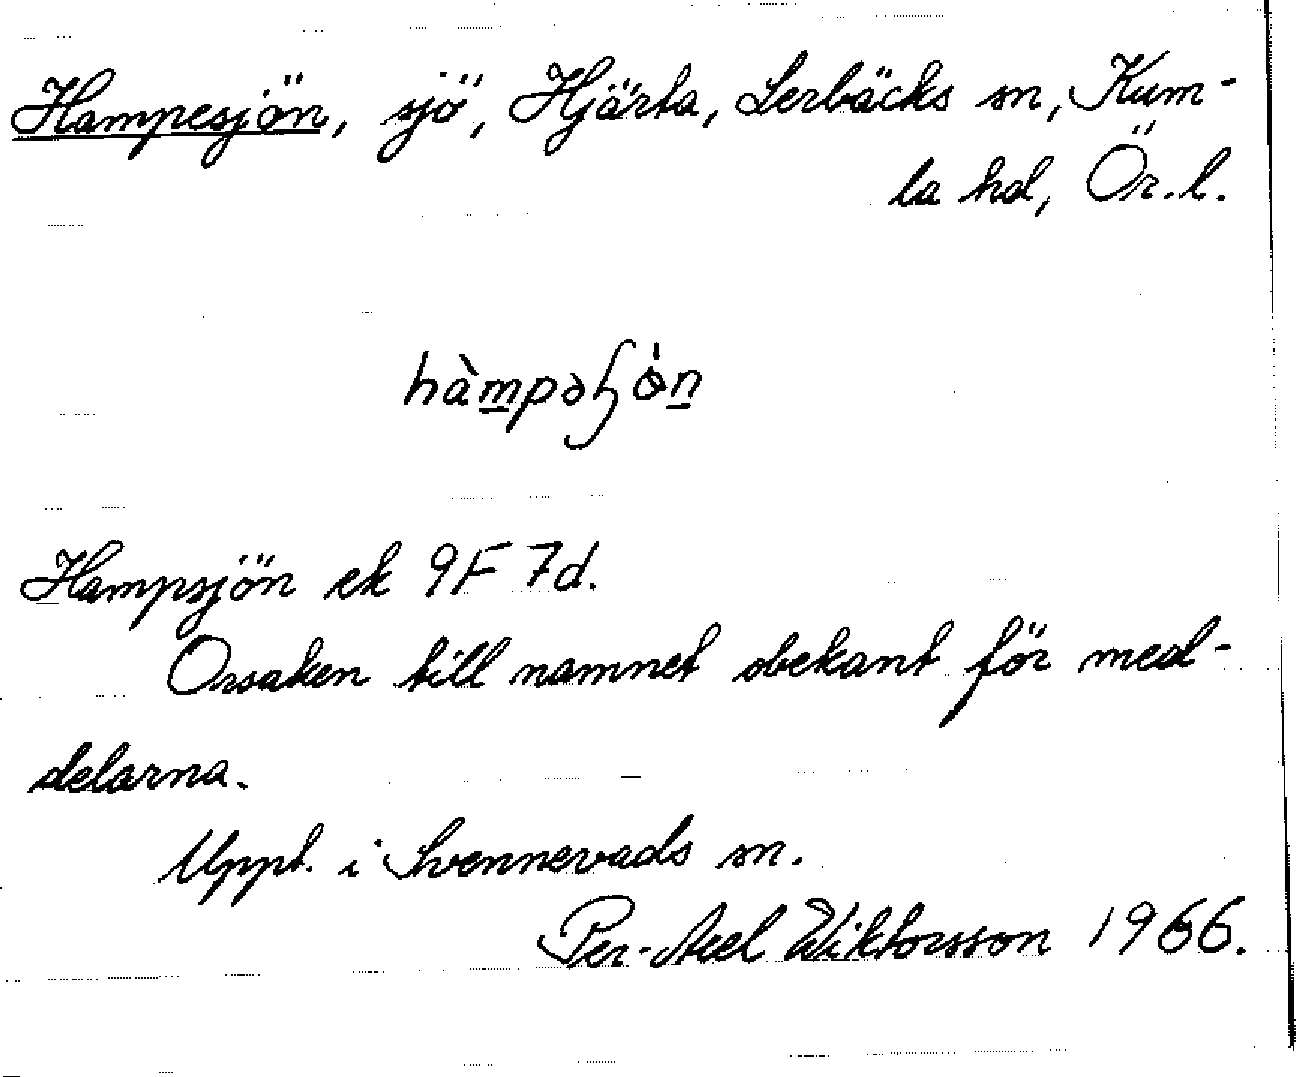 Hampesjön, sjö, Hjärta, Lerbäcks sn, Kum-
la hd, Ör. l.
hàmpəɧö̀n
Hampsjön ek 9F 7d.
Orsaken till namnet obekant för med-
delarna.
Uppt. i Svennevads sn.
Per-Axel Wiktorsson 1966.